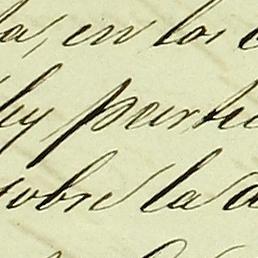 la, en los
ley parte
sobre la